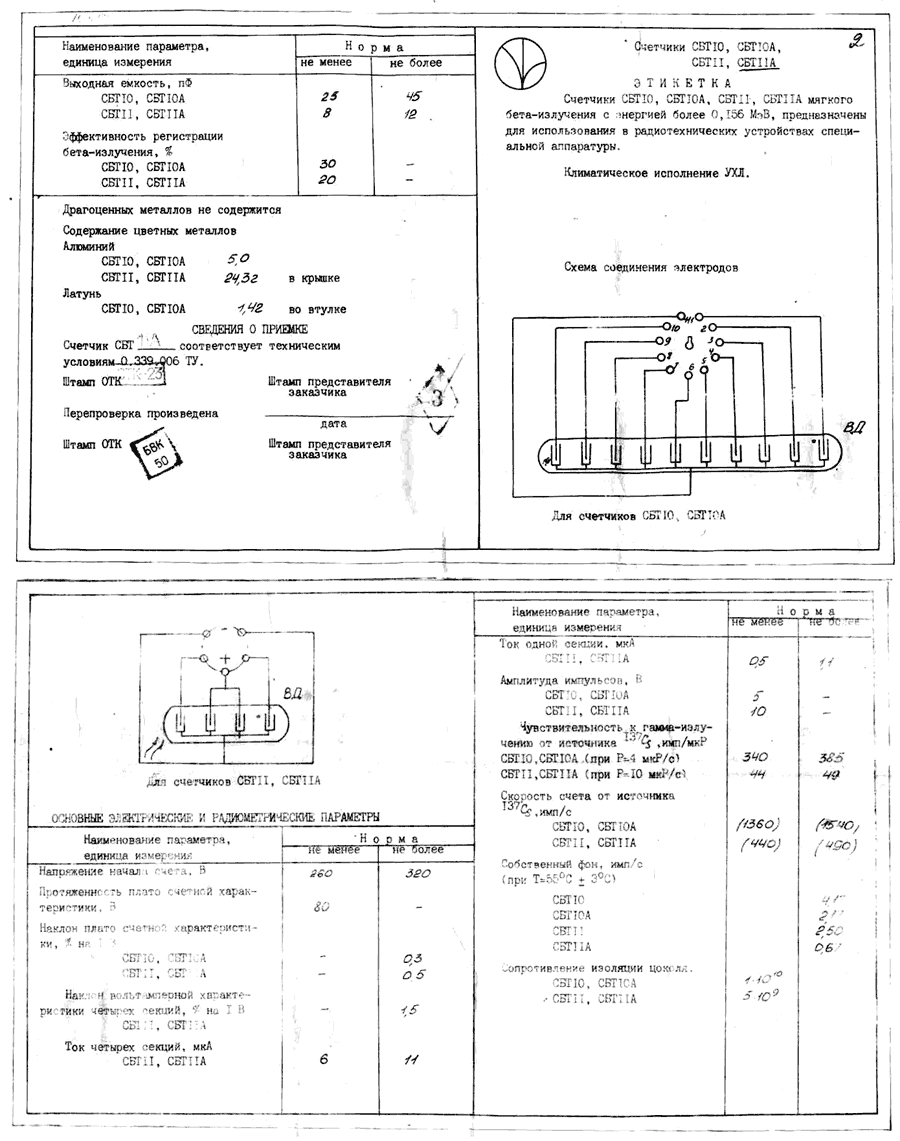 Наименование параметра,
единица измерения
Норма
не менее
не более
Выходная емкость, пФ
СБТ10, СБТ10А 25 45
СБТ11, СБТ11А 8 12
Эффективность регистрации
бета-излучения, %
СБТ10, СБТ10А 30 –
СБТ11, СБТ11А 20 –
Драгоценных металлов не содержится
Содержание цветных металлов
Алюминий
СБТ10, СБТ10А 5,0
СБТ11, СБТ11А 24,32 в крышке
Латунь
СБТ10, СБТ10А 1,42 во втулке
СВЕДЕНИЯ О ПРИЕМКЕ
Счетчик СБТ соответствует техническим
условиям 0.339.006 ТУ.
Штамп ОТК
Штамп представителя
заказчика
3
Перепроверка произведена
дата
Штамп ОТК
БВК
50
Штамп представителя
заказчика
2
Счетчики СБТ10, СБТ10А,
СБТ11, СБТ11А
ЭТИКЕТКА
Счетчики СБТ10, СБТ10А, СБТ11, СБТ11А мягкого
бета-излучения с энергией более 0,156 МэВ, предназначены
для использования в радиотехнических устройствах специ-
альной аппаратуры.
Климатическое исполнение УХЛ.
Схема соединения электродов
11
10 2
9 3
8 4
7 6 5
ВД
Для счетчиков СБТ10, СБТ10А
+
ВД
Для счетчиков СБТ11, СБТ11А
ОСНОВНЫЕ ЭЛЕКТРИЧЕСКИЕ И РАДИОМЕТРИЧЕСКИЕ ПАРАМЕТРЫ
Наименование параметра,
единица измерения
Норма
не менее
не более
Напряжение начала счета, В 260 320
Протяженность плато счетной харак-
теристики, В 80 –
Наклон плато счетной характеристи-
ки, % на 1 В
СБТ10, СБТ10А – 0,3
СБТ11, СБТ11А – 0,5
Наклон вольтамперной характе-
ристики четырех секций, % на 1 В – 1,5
СБТ11, СБТ11А
Ток четырех секций, мкА
СБТ11, СБТ11А 6 11
Наименование параметра,
единица измерения
Норма
не менее
не более
Ток одной секции, мкА
СБТ11, СБТ11А 0,5 1,1
Амплитуда импульсов, В
СБТ10, СБТ10А 5 –
СБТ11, СБТ11А 10 –
Чувствительность к гамма-излу-
чению от источника 137Cs, имп/мкР
СБТ10, СБТ10А (при Р=4 мкР/с) 340 385
СБТ11, СБТ11А (при Р=10 мкР/с) 44 49
Скорость счета от источника
137Cs, имп/с
СБТ10, СБТ10А (1360) (1540)
СБТ11, СБТ11А (440) (490)
Собственный фон, имп/с
(при Т=55°С ± 3°С)
СБТ10
СБТ10А
СБТ11 2,50
СБТ11А
Сопротивление изоляции цоколя,
СБТ10, СБТ10А 1·10¹⁰
СБТ11, СБТ11А 5·10⁹